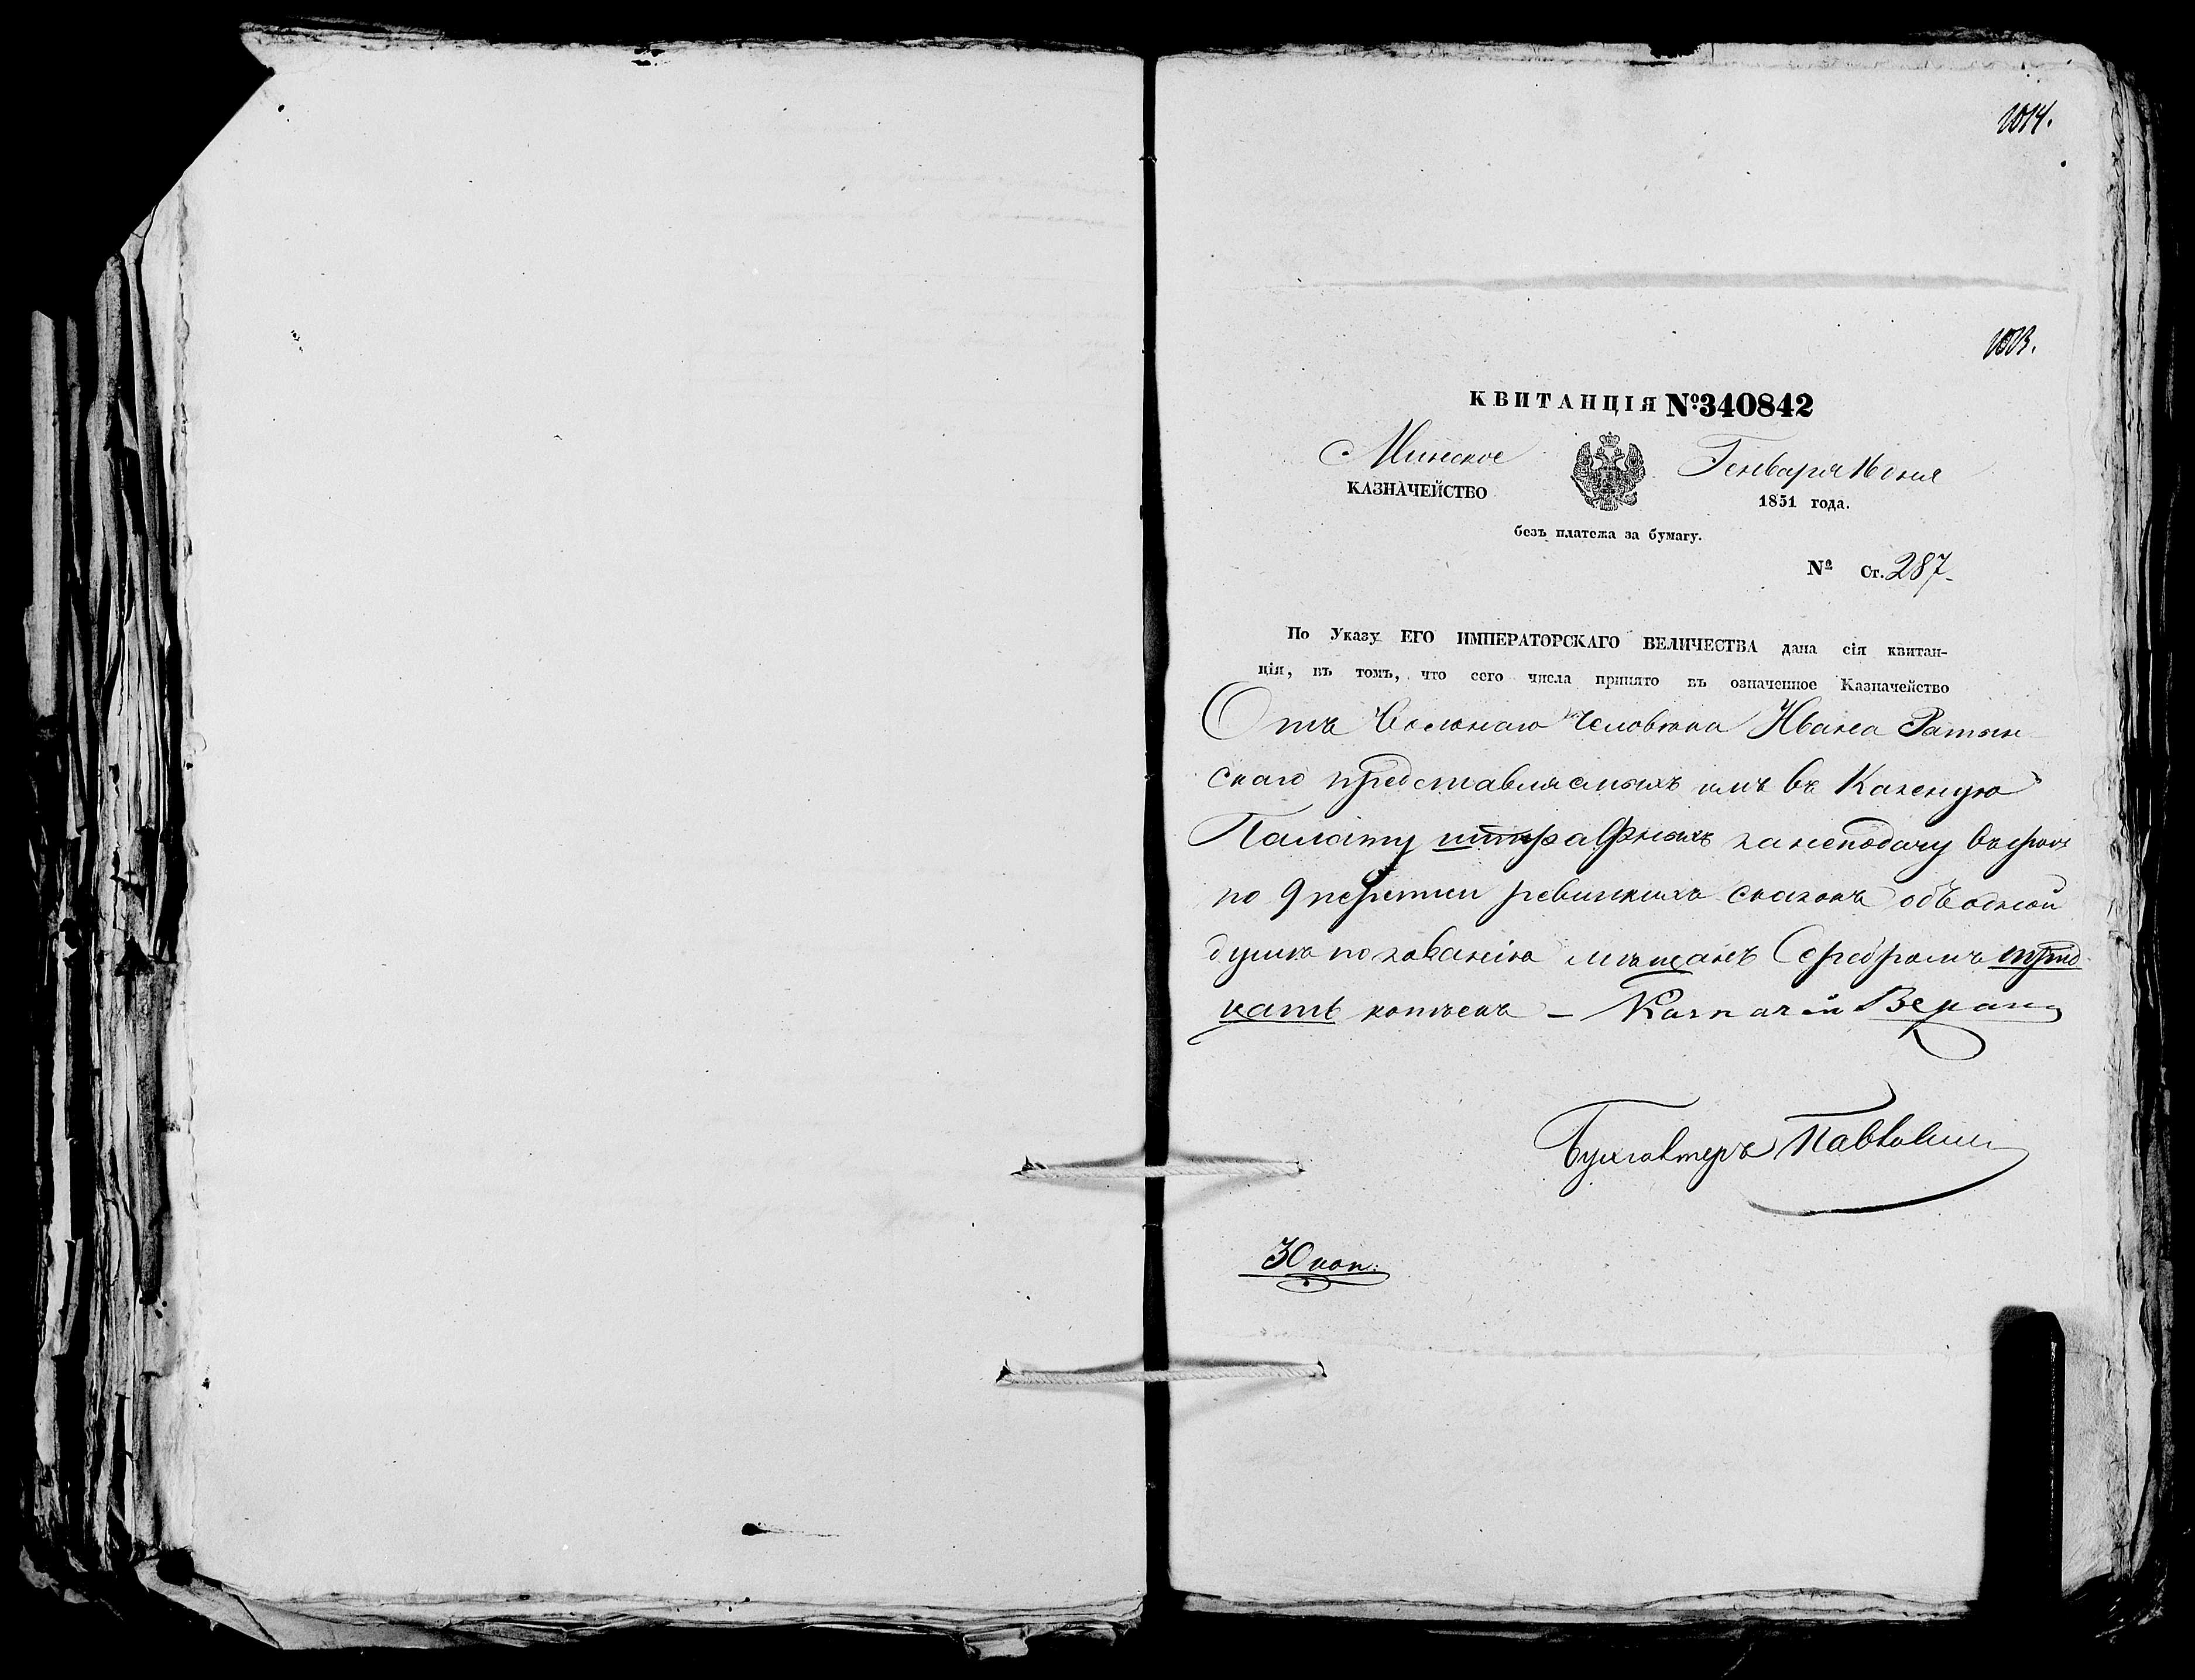 1014.
1013.
КВИТАНЦІЯ №340842
Минское
КАЗНАЧЕЙСТВО
Генваря 16 дня
1851 года.
безъ платежа за бумагу.
№ Ст. 287
По Указу ЕГО ИМПЕРАТОРСКАГО ВЕЛИЧЕСТВА дана сія квитан-
ція, въ томъ, что сего числа принято въ означенное Казначейство
Отъ Вольнаго Человѣка Ивана Ратын-
скаго представляемыхъ имъ въ Казеную
Палату штрафныхъ за неподачу въ срокъ
по 9 переписи ревизкихъ сказокъ объ одной
душѣ по званію мѣщанъ Серебромъ трид-
цать копѣекъ – Казначей
Бухгалтеръ
30 коп.